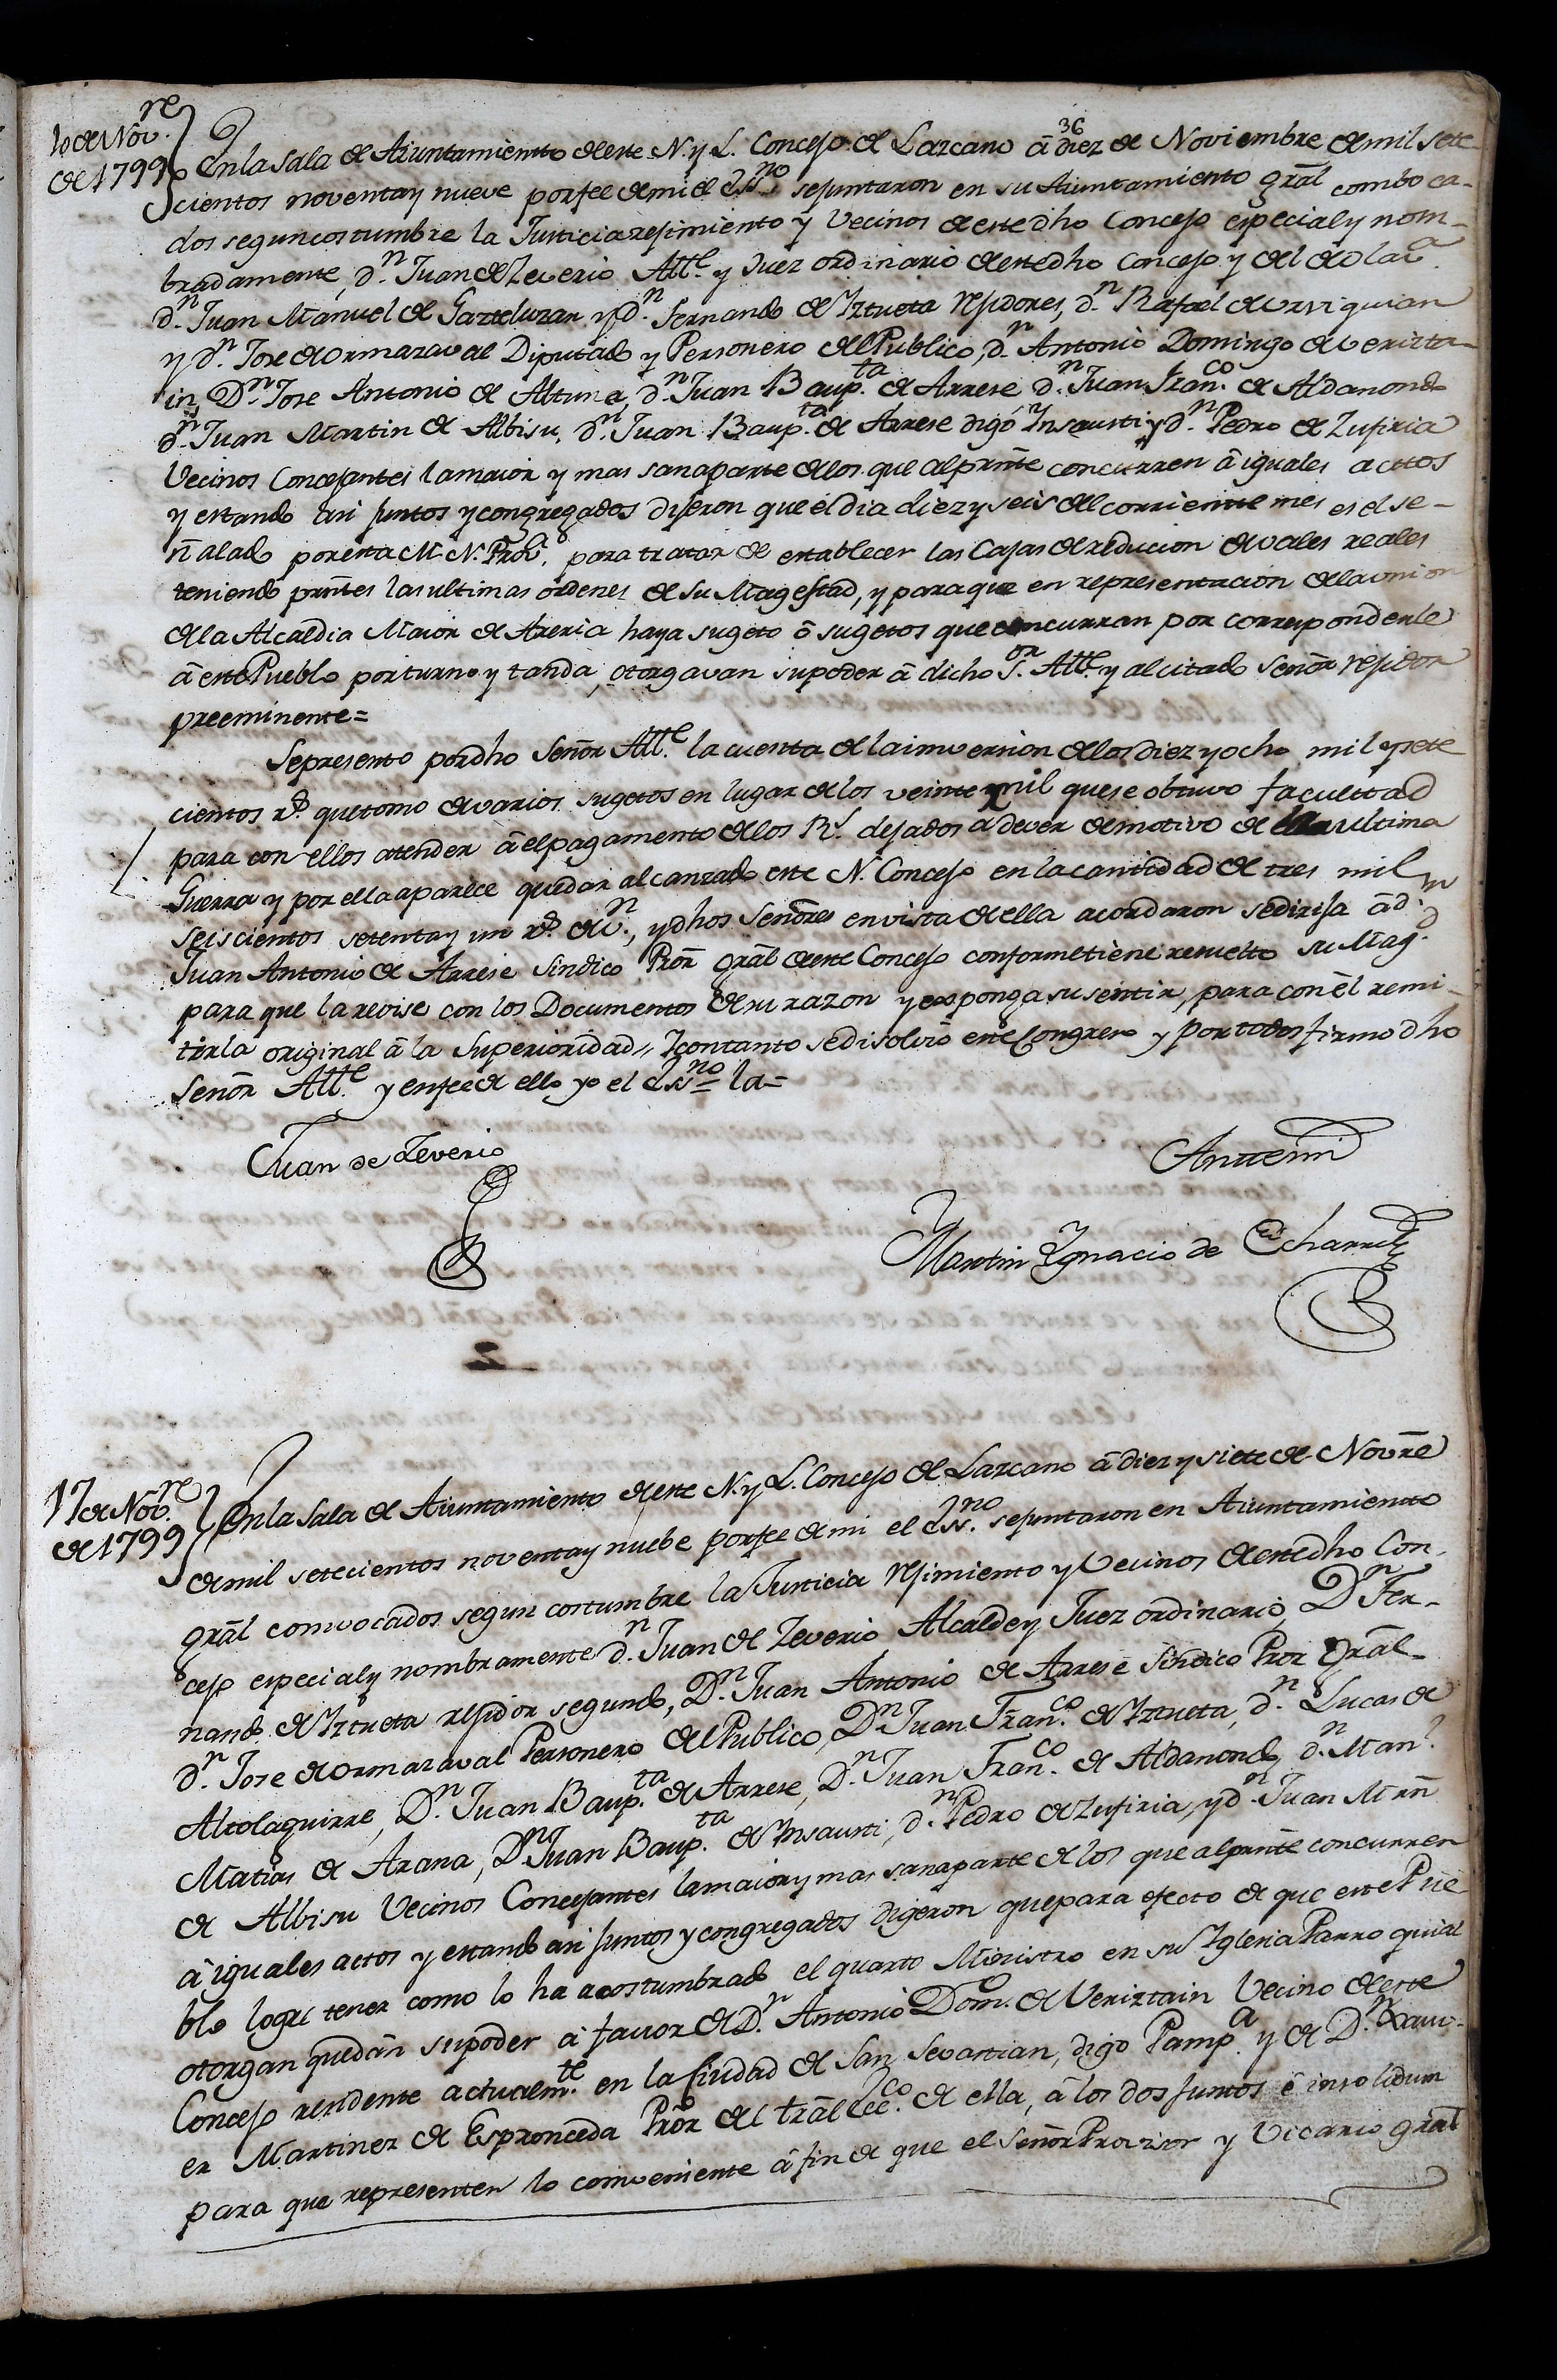 10 de Nov.re
de 1799
36
En la sala de Aiuntamientto de este N. y L. Concejo de Lazcano â diez de Noviembre de mil sete
cientos noventa y nueve por fee de mi el Ess.no se juntaron en su Aiuntamiento grâl combo ca-
dos segun costumbre la Justicia rejimiento y Vecinos de este dho Concejo especial y nom-
bradamente, d.n Juan de Zeverio All.e y Juez ordinario de este dho Concejo y del de Olav.a
d.n Juan Manuel de Gazteluzar y d.n Fernando de Yztueta rejidores, d.n Rafael de Urviquian
y d.n Jose de Ormazaval Diputado y Personero del Publico, d.n Antonio Domingo de Verizta-
in, D.n Jose Antonio de Altuna, d.n Juan Baup.ta de Arrese d.n Juan Fran.co de Aldanondo
d.n Juan Martin de Albisu, d.n Juan Baup.ta de Arrese digo Ynsausti y d.n Pedro de Zufiria
Vecinos Concejantes la maior y mas sana parte de los que al prñte concurren â iguales acttos
y estando asi juntos y congregados dijeron que el dia diez y seis del corriente mes es el se-
ñalado por esta M. N. Prov.a para tratar de establecer las Cajas de reducion de vales reales
teniendo prñtes las ultimas ordenes de su Magestad, y para que en representacion de la union
de la Alcaldia Maior de Areria haya sugeto ô sugetos que concurran por corresponderle
â este Pueblo por turno y tanda, otorgavan su poder â dicho S.or All.e y al citado Señor rejidor
preeminente=
Se presento por dho Señor All.e la cuenta de la inversion de los diez y ocho mil y sete
cientos r.s que tomo de varios sugetos en lugar de los veinte mil que se obtuvo facultad
para con ellos atender â el pagamento de los R.s dejados a dever de motivo de la ultima
Guerra y por ella aparece quedar alcanzado este N. Concejo en la cantidad de tres mil
seiscientos setenta y un r.s de v.n, y dhos Señores en vista de ella acordaron se dirija â d.n
Juan Antonio de Arrese Sindico Prôr grâl de este Concejo conforme tiene resuelto su Mag.d
para que la revise con los Documentos de su razon y exponga su sentir, para con êl remi-
tirla original â la Superioridad,, Y con tanto se disolvio este Congreso y por todos firmo dho
Señor All.e y en fee de ello yo el Ess.no= la=
Juan de Zeverio
Antemi
Martin Ygnacio de Echarri
17 de Nov.re
de 1799
En la sala de Aiuntamiento de este N. y L. Concejo de Lazcano â diez y siete de Novre
de mil setecientos noventa y nuebe por fee de mi el Ess.no se juntaron en Aiuntamiento
grâl convocados segun costumbre la Justicia rejimiento y Vecinos de este dho Con-
cejo especial y nombramente d.n Juan de Zeverio Alcalde y Juez ordinario, D.n Fer-
nando de Yztueta rejidor segundo, D.n Juan Antonio de Arrese Sindico Pror Grâl
d.n Jose de Ormazaval Personero del Publico, D.n Juan Fran.co de Yztueta, d.n Lucas de
Altolaguirre, D.n Juan Baup.ta de Arrese, D.n Juan Fran.co de Aldanondo, d.n Man.l
Matias de Arana, D.n Juan Baup.ta de Ynsausti, d.n Pedro de Zufiria, y d.n Juan Mrñ
de Albisu Vecinos Concejantes la maior y mas sana parte de los que al prñte concurren
â iguales actos y estando asi juntos y congregados digeron que para efecto de que este Pue
blo logre tener como lo ha acostumbrado el quarto Ministro en su Yglesia Parroquial
otorgan que dan su poder â favor de D.n Antonio Dom.o de Veriztain Vecino de este
Concejo residente actualm.te en la Ciudad de San Sevastian, digo Pamp.a y de D.n Xavi-
er Martinez de Espronceda Prôr del trâl Ecc.co de ella, â los dos juntos ê insolidum
para que representen lo conveniente â fin de que el Señor Provisor y Vicario grâl